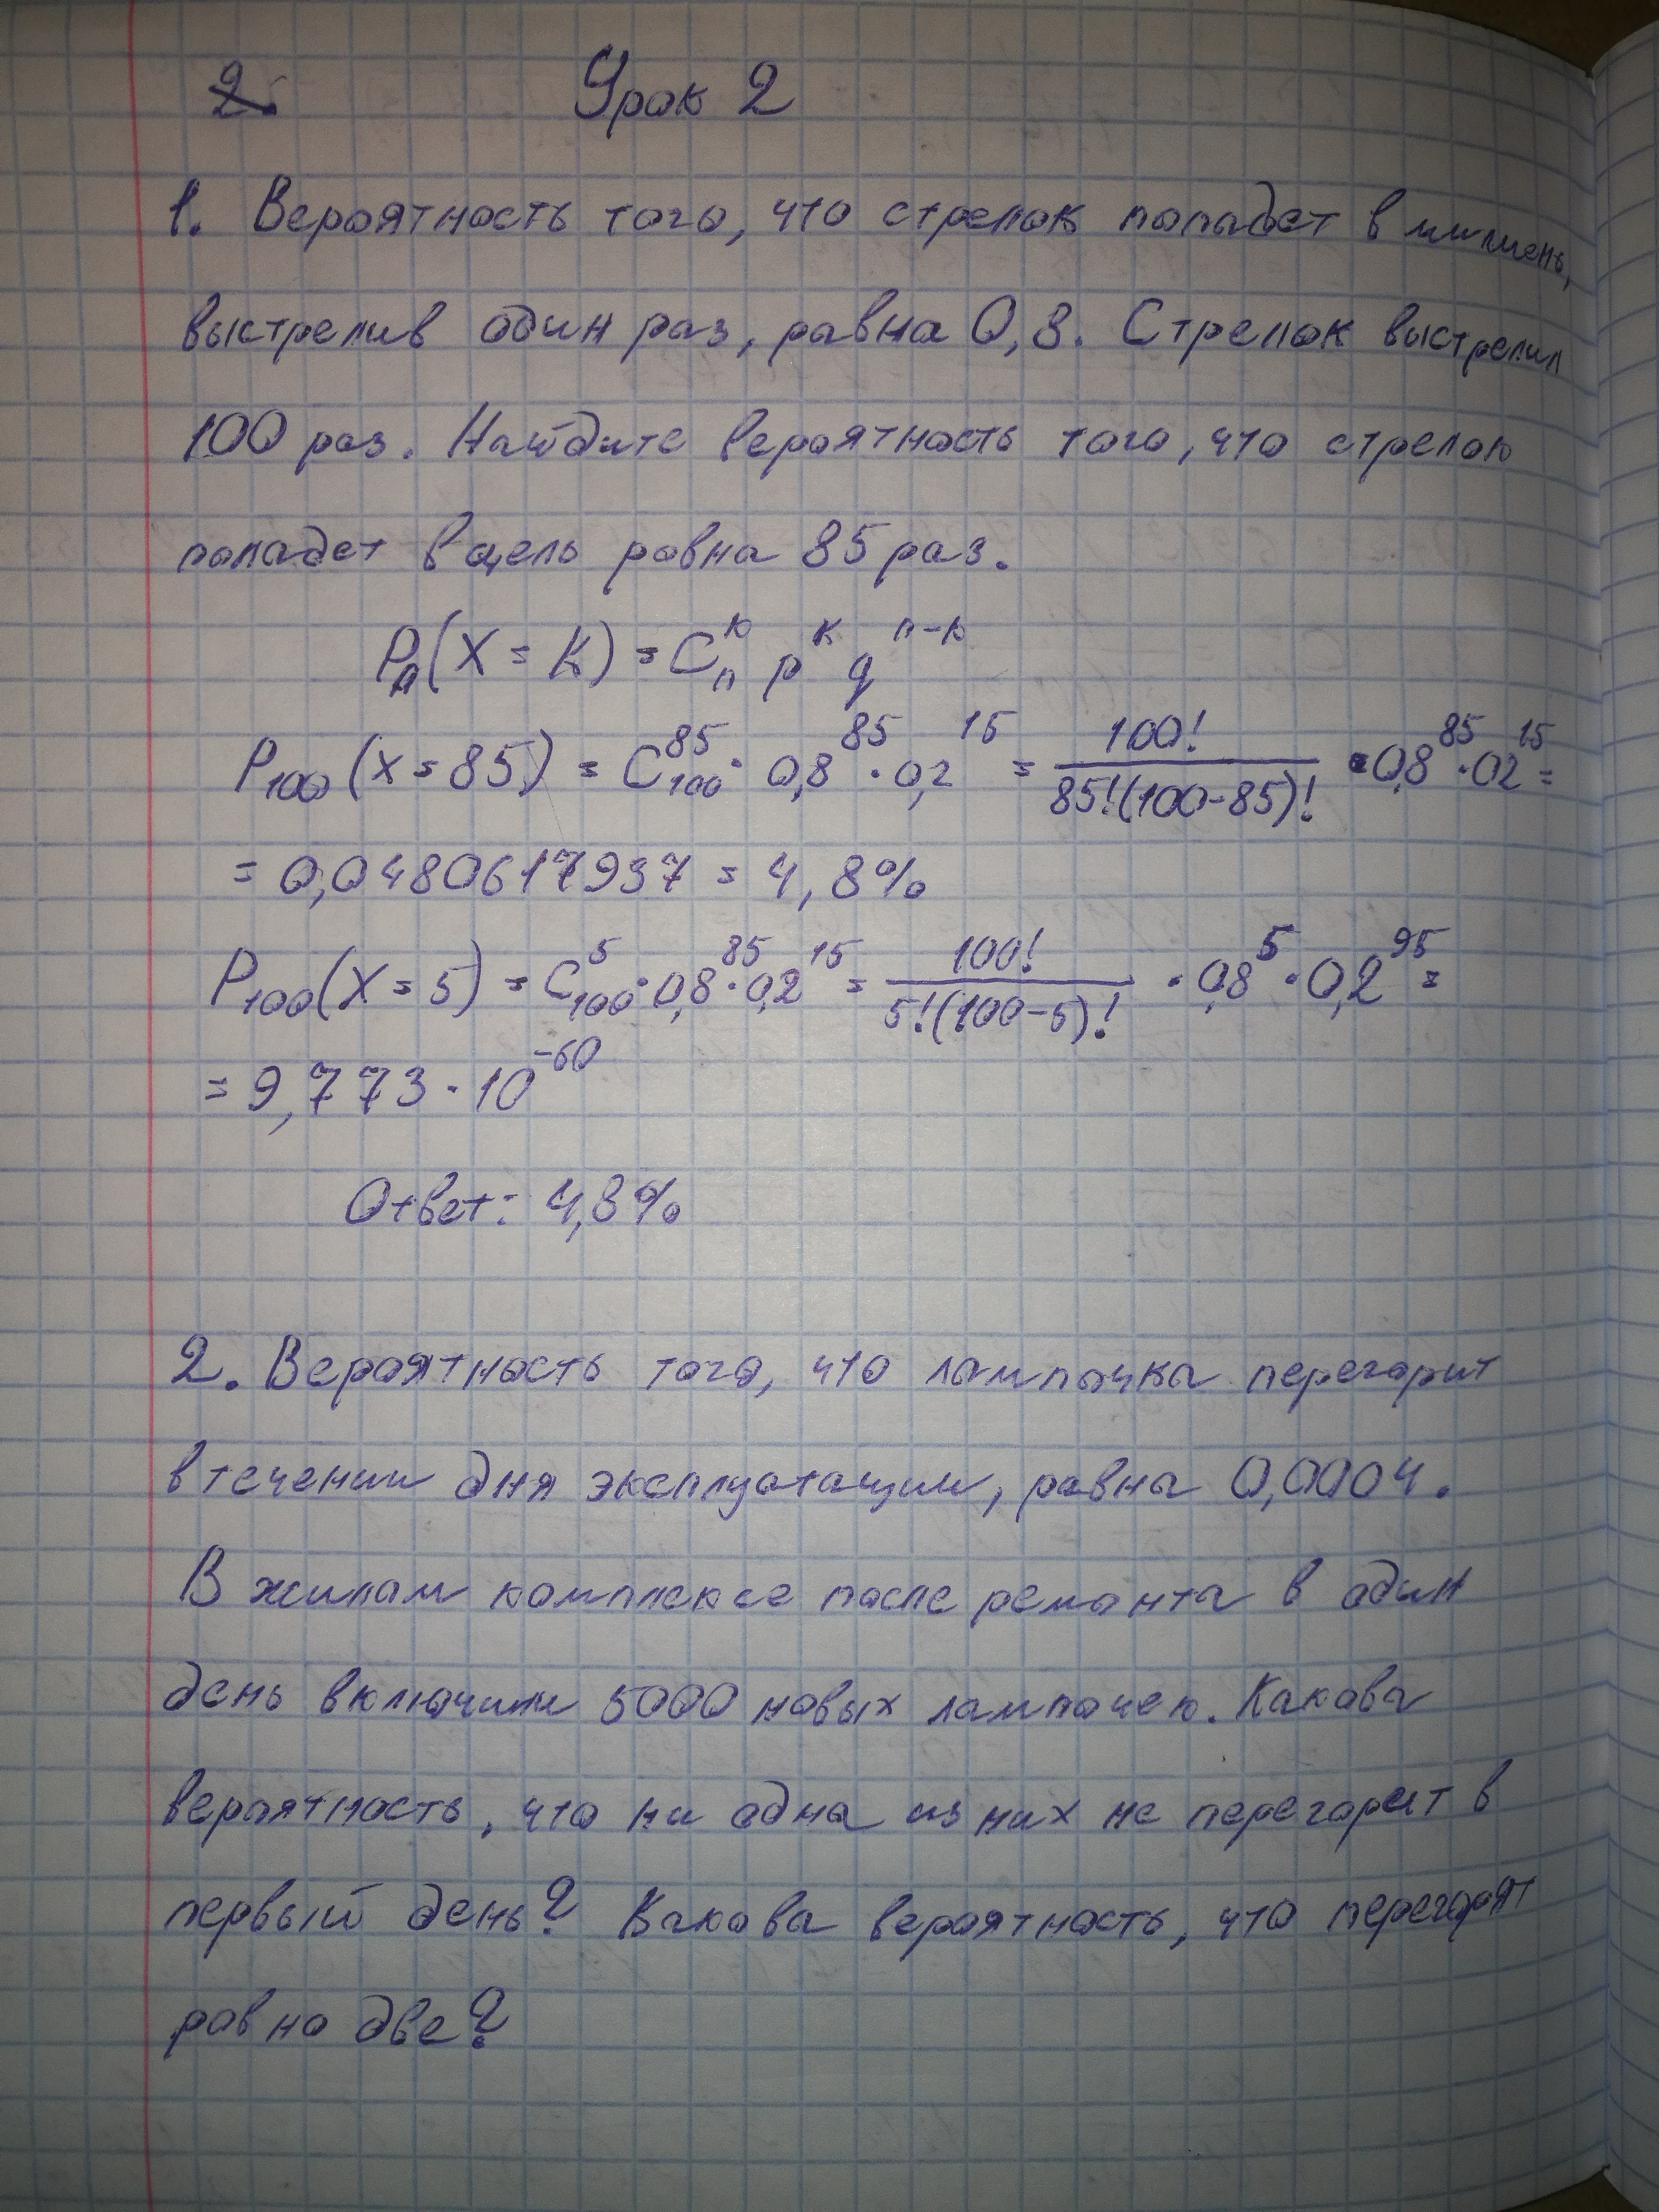 2. Урок 2
1. Вероятность того, что стрелок попадет в мишень,
выстрелив один раз, равна 0,8. Стрелок выстрелил
100 раз. Найдите вероятность того, что стрелок
попадет в цель равна 85 раз.
Pn(X = k) = C_n^k p^k q^{n-k}
P_100 (x = 85) = C_100^85 · 0,8^85 · 0,2^15 = 100! / 85!(100-85)! · 0,8^85 · 02^15 =
= 0,0480617937 = 4,8%
P_100 (X = 5) = C_100^5 · 0,8^85 · 0,2^15 = 100! / 5!(100-5)! · 0,8^5 · 0,2^95 =
= 9,773 · 10^{-60}
Ответ: 4,8%
2. Вероятность того, что лампочка перегорит
в течении дня эксплуатации, равна 0,0004.
В жилом комплексе после ремонта в один
день включили 5000 новых лампочек. Какова
вероятность, что ни одна из них не перегорит в
первый день? Какова вероятность, что перегорят
равно две?